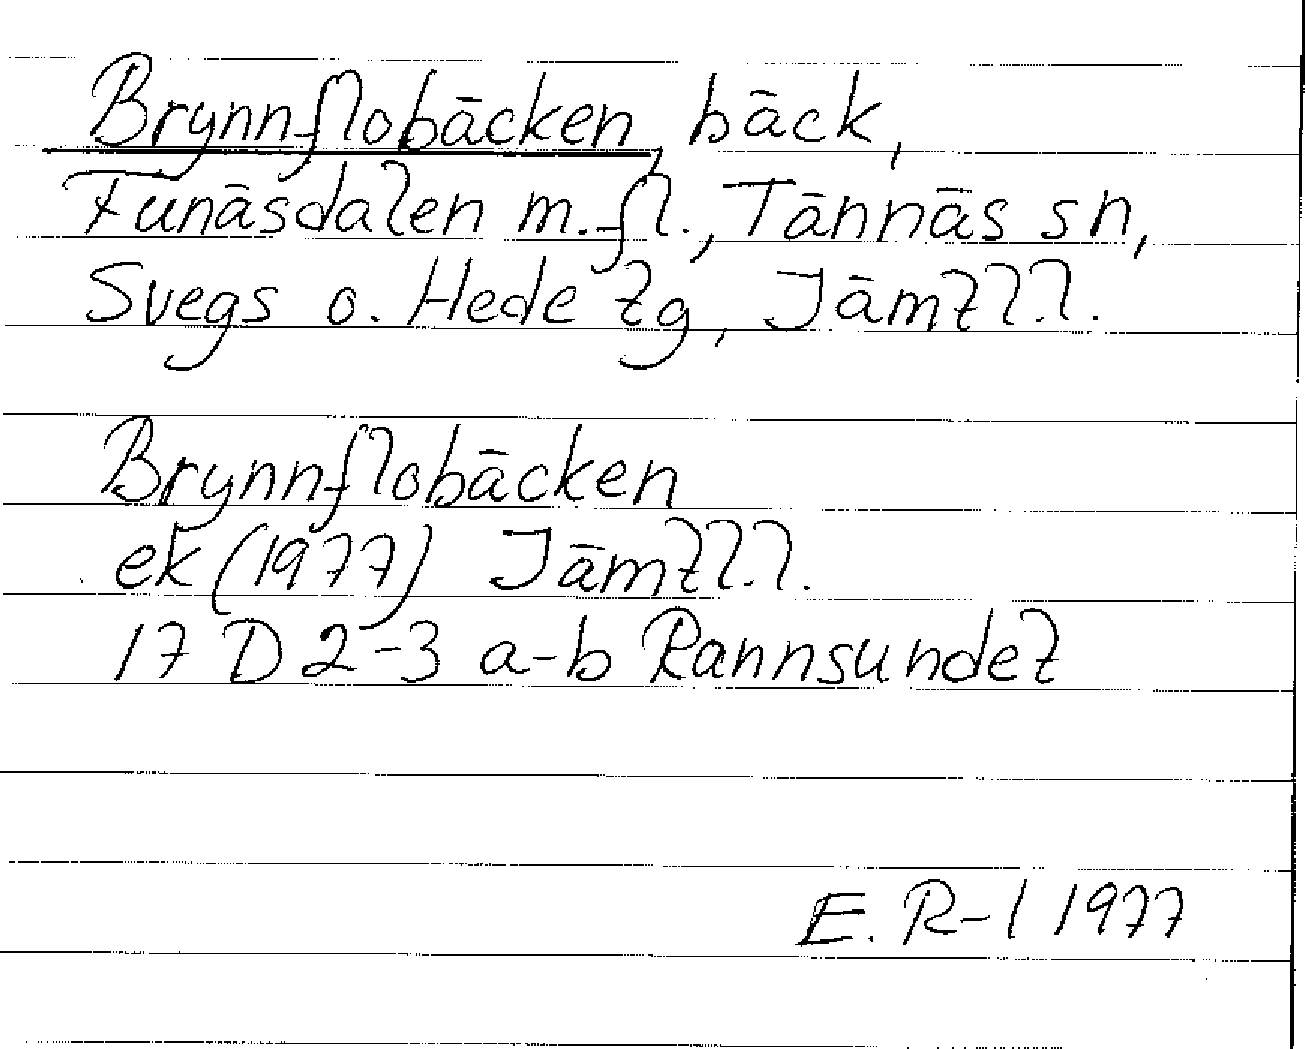 Brynnflobäcken, bäck,
Funäsdalen m.fl., Tännäs sn,
Svegs o. Hede tg, Jämtl.l.
Brynnflobäcken
ek (1977) Jämtl.l.
17 D 2-3 a-b Rannsundet
E. R-l 1977